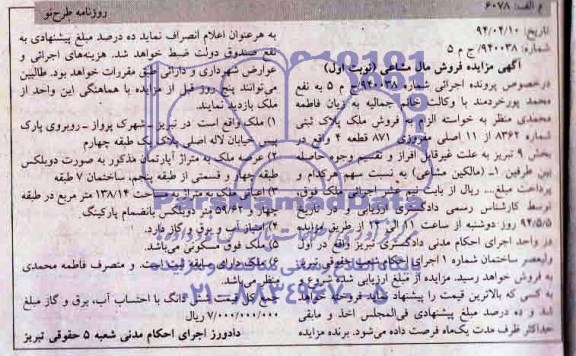 روزنامه طرح‌نو
م الف: ۶۰۷۸
تاریخ: ۹۴/۰۴/۱۰
شماره: ۹۴۰۰۳۸/ ج م ۵
آگهی مزایده فروش مال مشاعی (نوبت اول)
درخصوص پرونده اجرائی شماره ۹۴۰۰۳۸ ج م ۵ به نفع
محمد پورخردمند با وکالت خانم جمالیه به زیان فاطمه
محمدی منظر به خواسته الزام به فروش ملک پلاک ثبتی
شماره ۸۳۶۲ از ۱۱ اصلی مفروزی ۸۷۱ قطعه ۴ واقع در
بخش ۹ تبریز به علت غیرقابل افراز و تقسیم وجوه حاصله
بین طرفین ۱- (مالکین مشاعی) به نسبت سهم هرکدام و
پرداخت مبلغ... ریال از بابت نیم عشر اجرائی ملک فوق،
توسط کارشناس رسمی دادگستری ارزیابی و در تاریخ
۹۴/۵/۵ روز دوشنبه از ساعت ۱۰ الی ۱۲ از طریق مزایده
در واحد اجرای احکام مدنی دادگستری تبریز واقع در اول
ولیعصر ساختمان شماره ۱ اجرای احکام شعبه حقوقی تبریز
به فروش خواهد رسید. مزایده از مبلغ ارزیابی شده شروع و
به کسی که بالاترین قیمت را پیشنهاد نماید فروخته خواهد
شد و ده درصد مبلغ پیشنهادی فی‌المجلس اخذ و مابقی
حداکثر ظرف مدت یک‌ماه فرصت داده می‌شود. برنده مزایده
به هرعنوان اعلام انصراف نماید ده درصد مبلغ پیشنهادی به
نفع صندوق دولت ضبط خواهد شد. هزینه‌های اجرائی و
عوارض شهرداری و دارائی طبق مقررات خواهد بود. طالبین
می‌توانند پنج روز قبل از مزایده با هماهنگی این واحد از
ملک بازدید نمایند.
۱) ملک واقع است در تبریز ـ شهرک پرواز ـ روبروی پارک
پیس خیابان لاله اصلی پلاک یک طبقه چهارم
۲) عرصه ملک به متراژ آپارتمان مذکور به صورت دوبلکس
طبقه چهار و قسمتی از طبقه پنجم، ساختمان ۷ طبقه
۳) اعیان ملک به متراژ به مساحت ۱۳۸/۱۴ متر مربع در طبقه
چهار و ۵۹/۶۲ متر دوبلکس بانضمام پارکینگ
۴) امتیاز آب و برق و گاز دارد.
۵) ملک فوق مسکونی می‌باشد.
۶) ملک دارای سابقه ثبتی است و متصرف فاطمه محمدی
منظر می‌باشد.
جمع کل قیمت شش دانگ با احتساب آب، برق و گاز مبلغ
۷/۰۰۰/۰۰۰/۰۰۰ ریال
دادورز اجرای احکام مدنی شعبه ۵ حقوقی تبریز
ParsNamadData